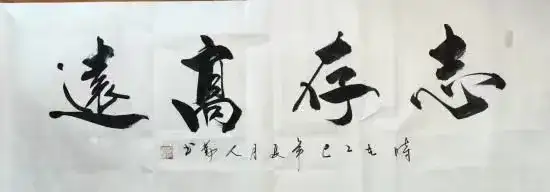 志存高遠
時在乙巳年夏月人